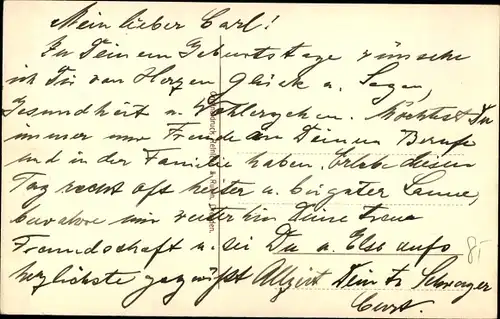 Mein lieber Carl!
Zu Deinem Geburtstage wünsche
ich Dir von Herzen Glück u. Segen,
Gesundheit u. Wohlergehen. Möchtest Du
immer nur Freude an Deinem Berufe
und in der Familie haben. Erlebe diesen
Tag recht oft heiter u. bei guter Laune,
bewahre mir weiterhin deine treue
Freundschaft u. sei Du u. Else aufs
herzlichste gegrüßt Allzeit Dein tr. Schwager
Curt.